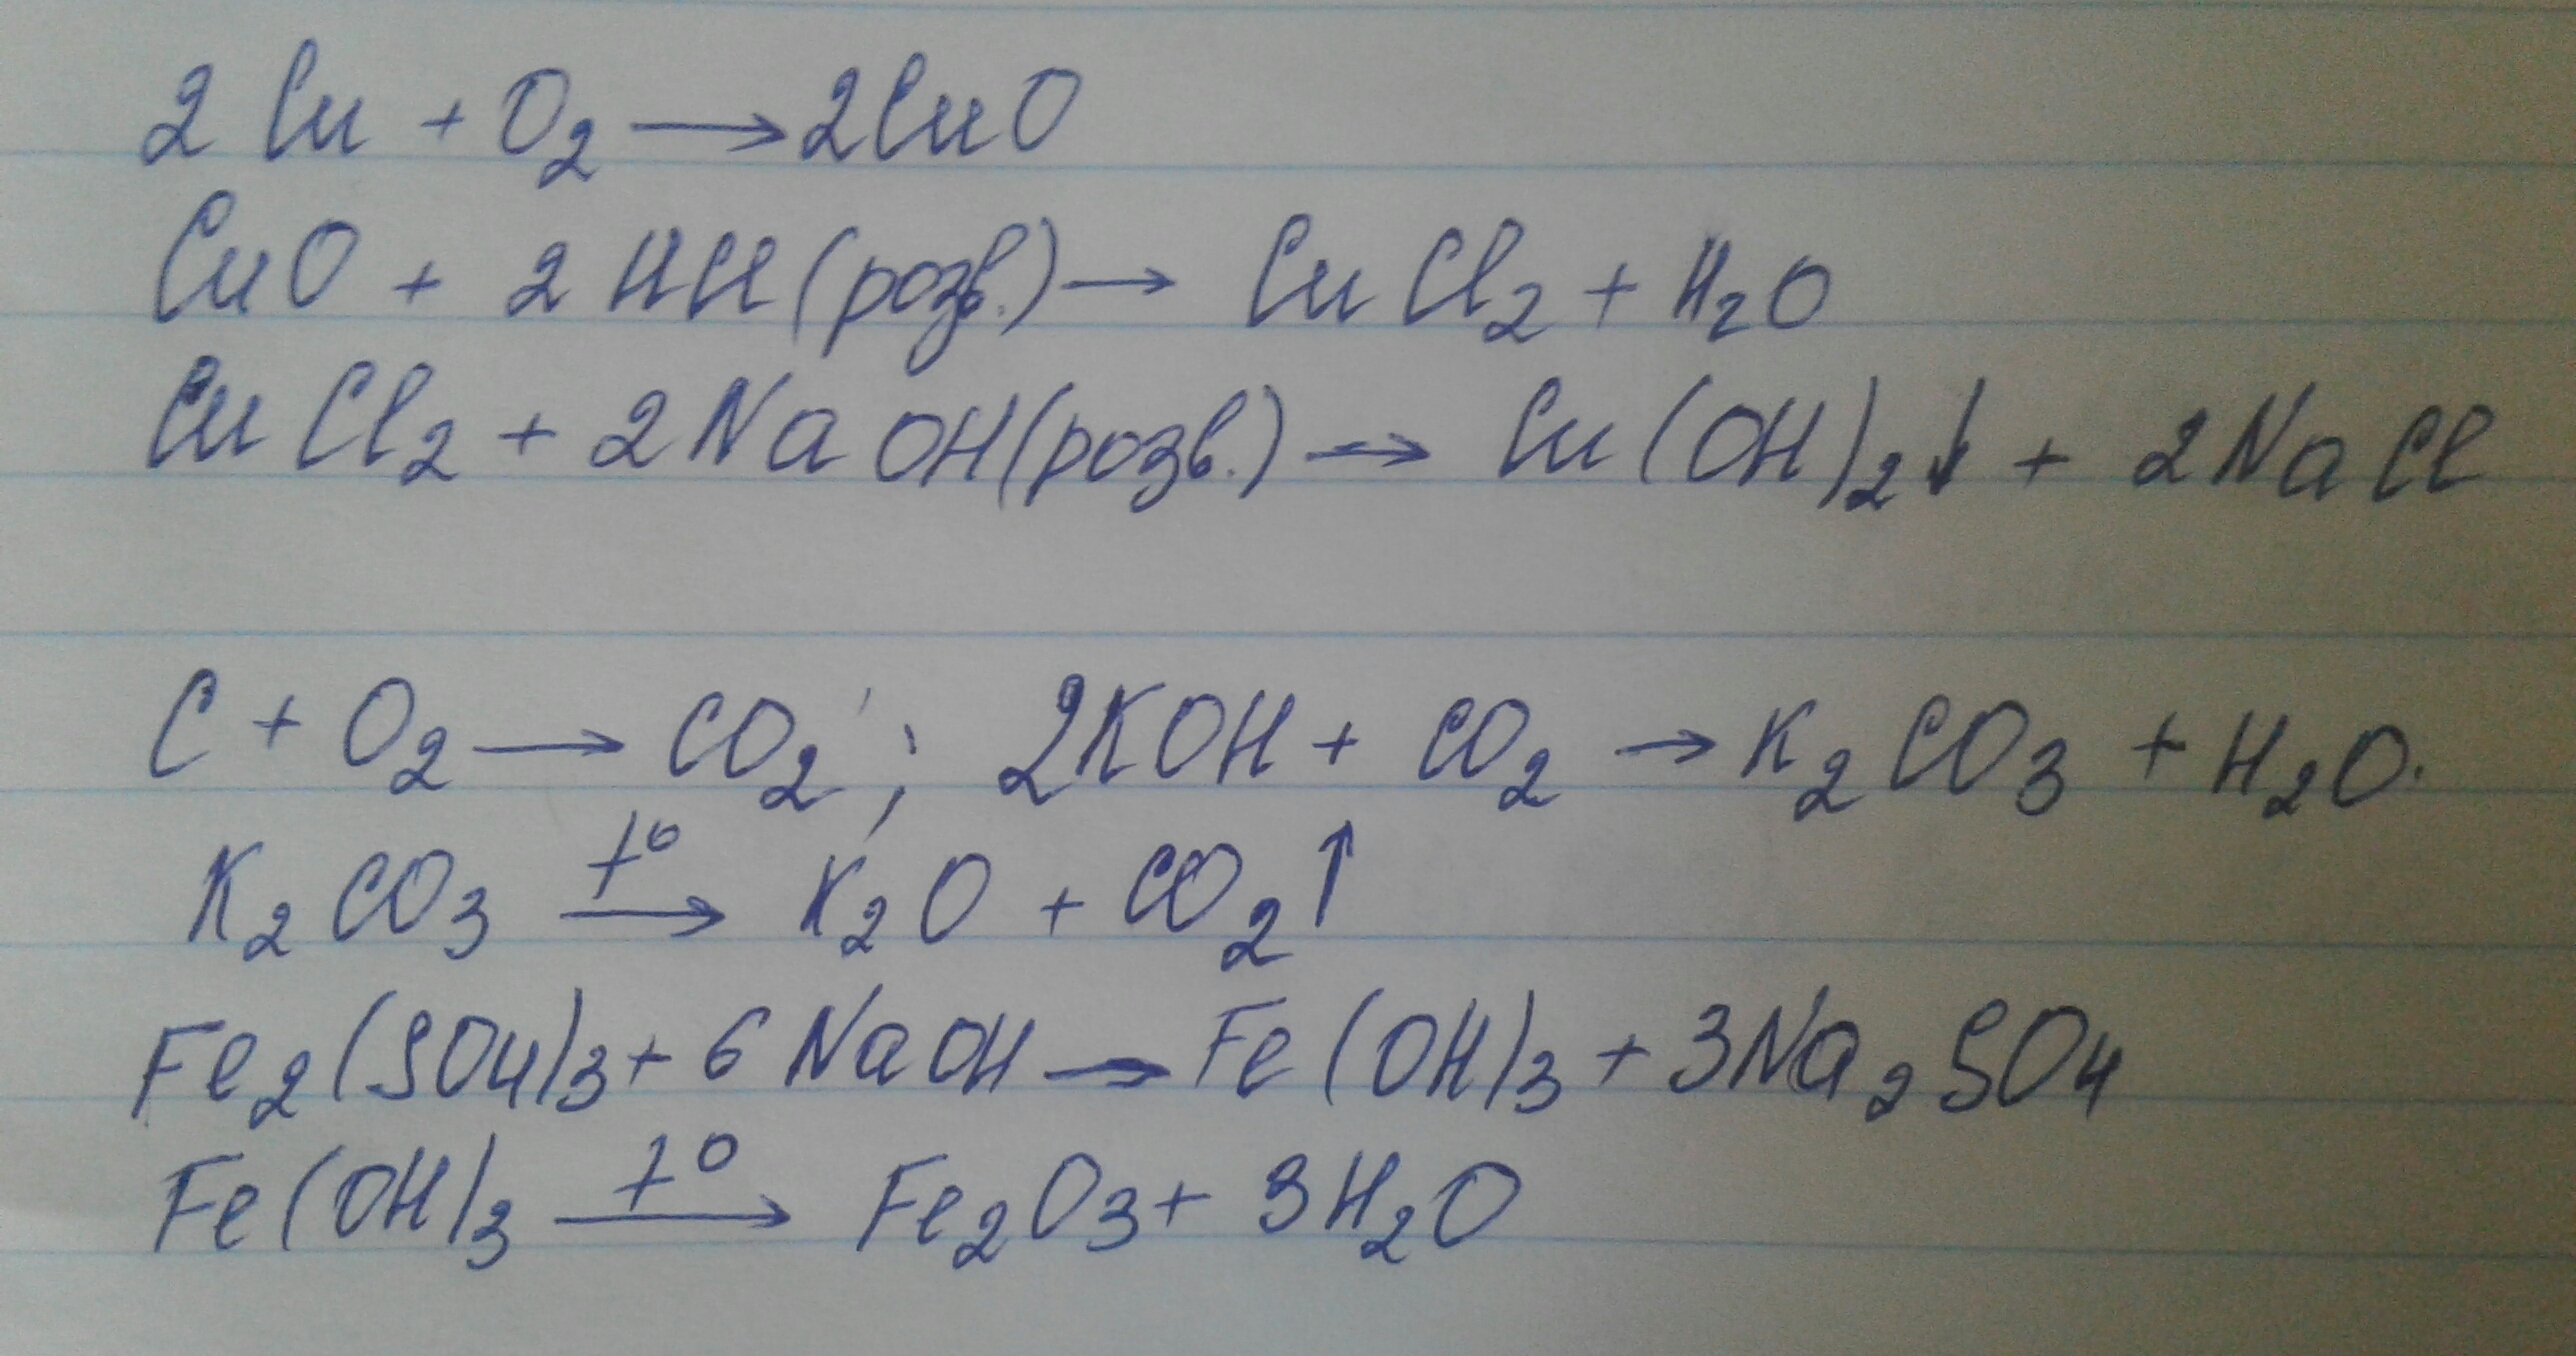 2Cu + O₂ → 2CuO
CuO + 2HCl (розв.) → CuCl₂ + H₂O
CuCl₂ + 2NaOH (розв.) → Cu(OH)₂↓ + 2NaCl
C + O₂ → CO₂ ; 2KOH + CO₂ → K₂CO₃ + H₂O.
K₂CO₃ t° → K₂O + CO₂↑
Fe₂(SO₄)₃ + 6NaOH → Fe(OH)₃ + 3Na₂SO₄
Fe(OH)₃ t° → Fe₂O₃ + 3H₂O